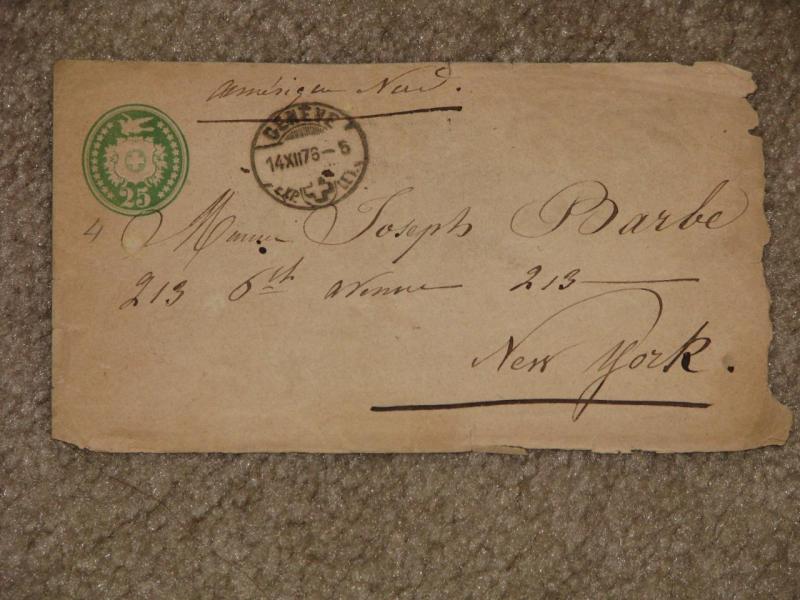 Amérique Nord.
GENÈVE
14XII76-6
EXP. LETT.
25
4
Joseph Barbe
213 6th avenue 213
New York.